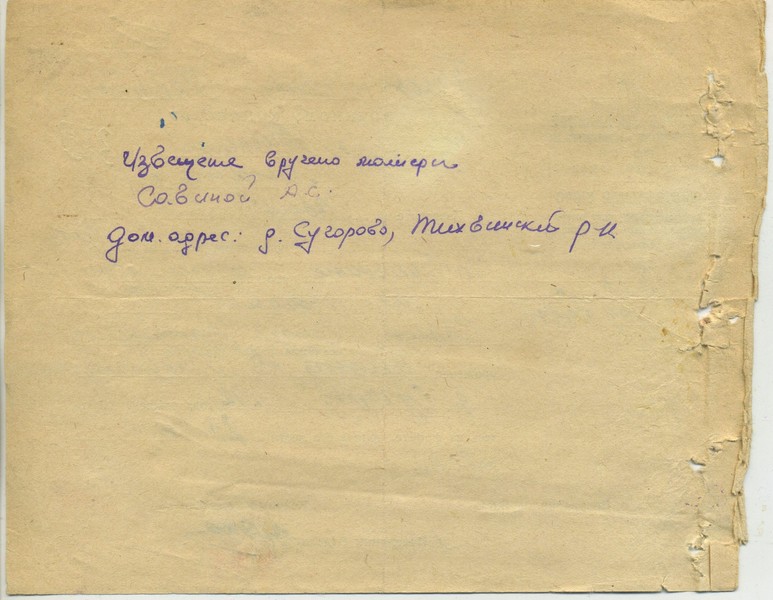 Извещение вручено матери
Савиной А.С.
Дом. адрес: д. Сугорово, Тихвинский р-н